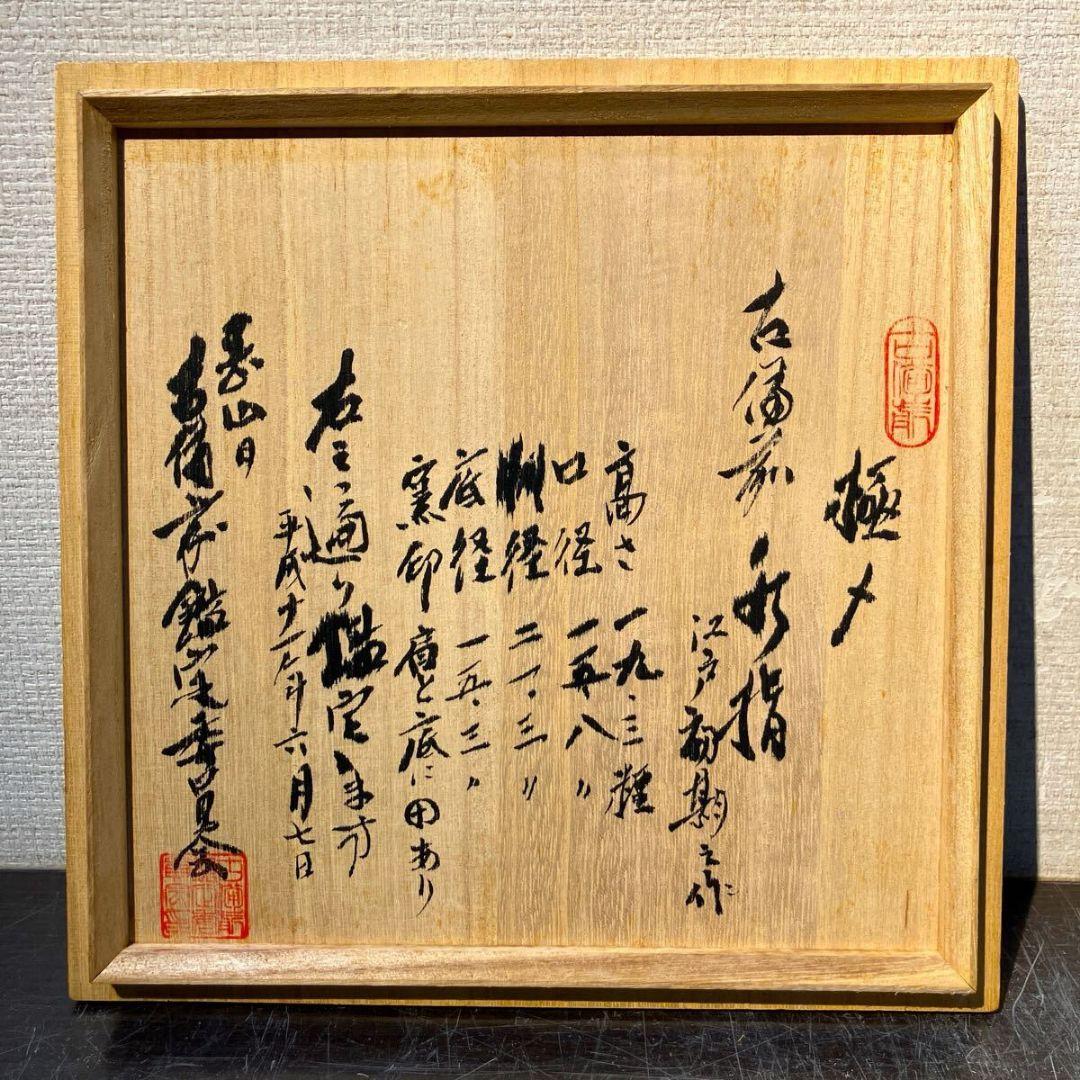 古備前
極メ
古備前 水指
江戸初期之作
高さ 一九・三糎
口径 一五・八〃
胴径 二一・三〃
底径 一五・三〃
窯印 肩と底に田あり
右之通り鑑定
平成十一年六月七日
古備前鑑定委員会